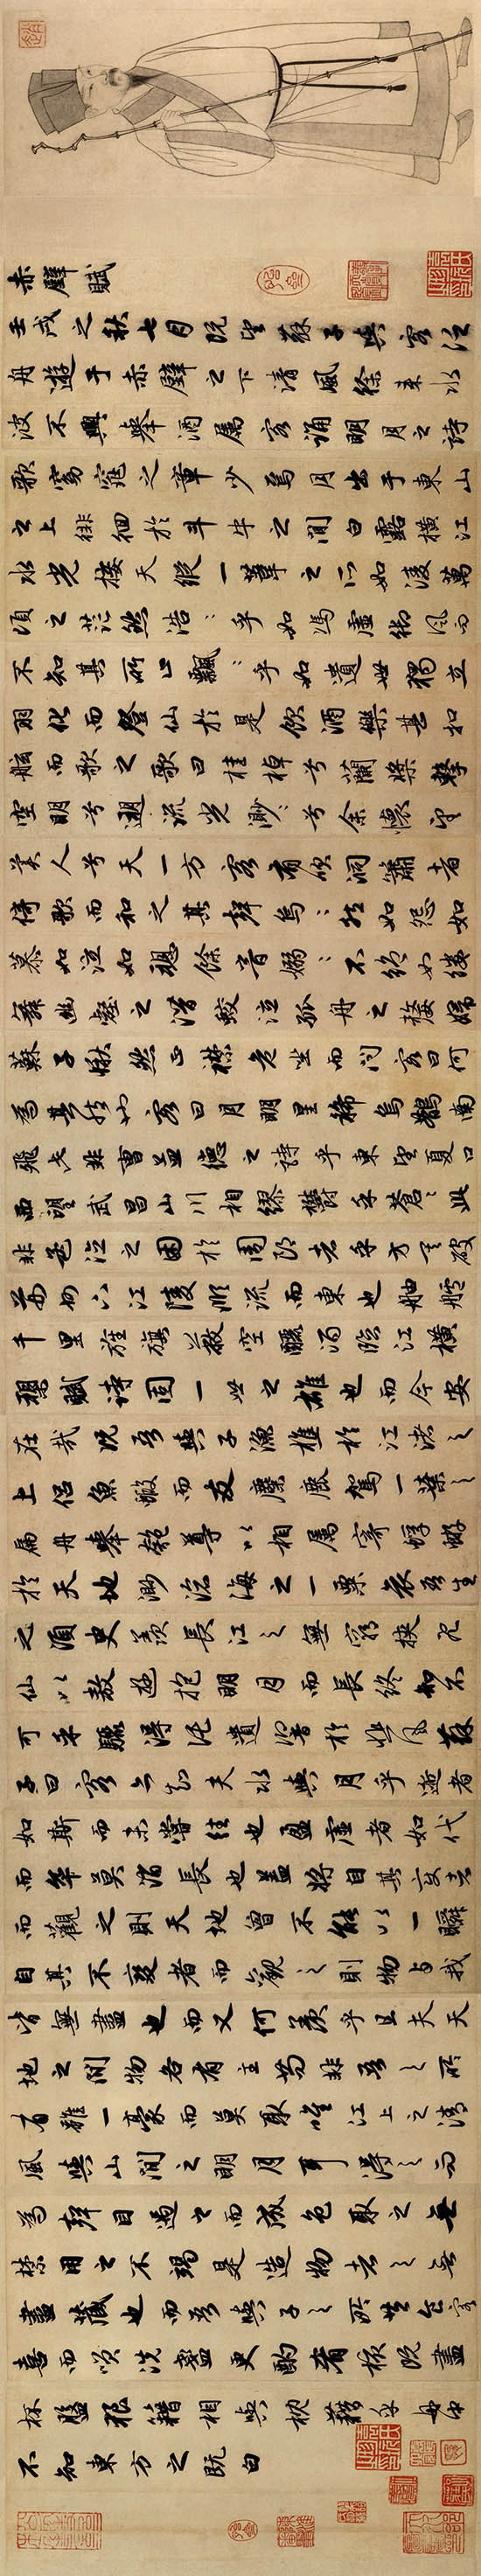 赤壁賦
壬戌之秋七月既望蘇子與客泛
舟遊于赤壁之下清風徐来水
波不興舉酒属客誦明月之詩
歌窈窕之章少焉月出于東山
之上徘徊於斗牛之間白露橫江
水光接天縱一葦之所如淩萬
頃之茫然浩〻乎如馮虛御風而
不知其所止飄〻乎如遺世獨立
羽化而登仙於是飲酒樂甚扣
舷而歌之歌曰桂棹兮蘭槳擊
空明兮遡流光渺〻兮余懷望
美人兮天一方客有吹洞簫者
倚歌而和之其聲烏〻然如怨如
慕如泣如訴餘音嫋〻不絶如縷
舞幽壑之潛蛟泣孤舟之嫠婦
蘇子愀然正襟危坐而問客曰何
為其然也客曰月明星稀烏鵲南
飛此非曹孟德之詩乎東望夏口
西望武昌山川相繆鬱乎蒼〻此
非孟德之困於周郎者乎方其破
荊州下江陵順流而東也舳艫
千里旌旗蔽空釃酒臨江橫
槊賦詩固一世之雄也而今安
在哉況吾與子漁樵於江渚之
上侶魚蝦而友麋鹿駕一葉之
扁舟舉匏尊以相属寄蜉蝣
於天地渺滄海之一粟哀吾生
之須臾羨長江之無窮挾飛
仙以遨遊抱明月而長終知不
可乎驟得託遺響於悲風蘇
子曰客亦知夫水與月乎逝者
如斯而未嘗往也盈虛者如代
而卒莫消長也蓋將自其變者
而觀之則天地曾不能以一瞬
自其不變者而觀之則物與我
皆無盡也而又何羨乎且夫天
地之間物各有主苟非吾之所
有雖一毫而莫取唯江上之清
風與山間之明月耳得之而
為聲目遇之而成色取之無
禁用之不竭是造物者之無
盡藏也而吾與子之所共食客
喜而笑洗盞更酌肴核既盡
杯盤狼籍相與枕藉乎舟中
不知東方之既白